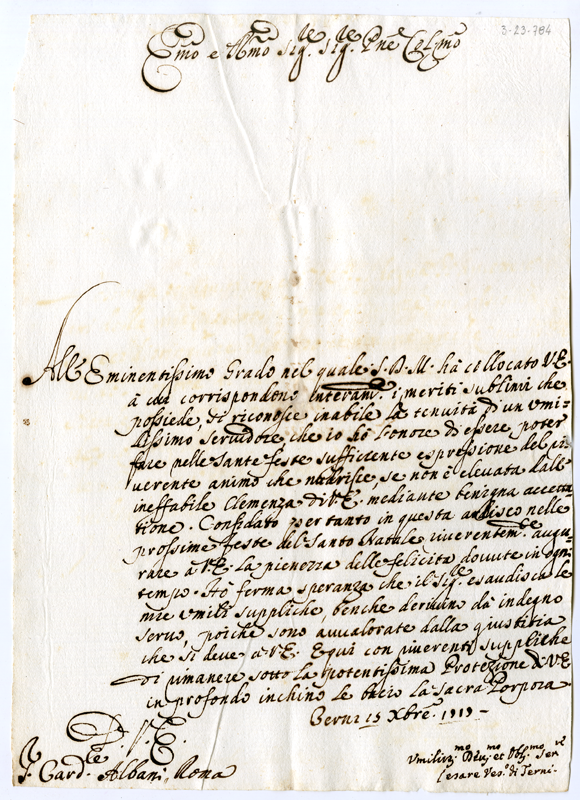 3-23-784
E.mo e R.mo Sig.re Sig.re P.ne Col.mo
All'Eminentissimo Grado nel quale S. D. M. hà collocato V.E.
à cui corrispondono interam.e i meriti sublimi che
possiede, si riconosce inabile la tenuità di un umi-
lissimo servidore che io hò l'onore di essere, poter
fare nelle sante feste sufficiente espressione del ri-
verente animo che nudrisce, se non è elevata dall'
ineffabile Clemenza di V.E. mediante benigna accetta-
tione. Confidato per tanto in questa ardisco nelle
prossime feste del Santo Natale riverentem.te augu-
rare à V.E. la pienezza delle felicità dovute in ogni
tempo. Hò ferma speranza che il Sig.re esaudisca le
mie umili suppliche, benche derivino dà indegno
servo, poiche sono avvalorate dalla giustitia
che si deve à V.E. E qui con riverenti suppliche
di rimanere sotto la potentissima Protezione di V.E.
in profondo inchino le bacio la Sacra Porpora
15 Xbre 1719
D. V. E.
S. Card.le Albani, Roma
Umiliss.mo Dev.mo et Obl.mo Ser.re
Cesare Ves.o di Terni